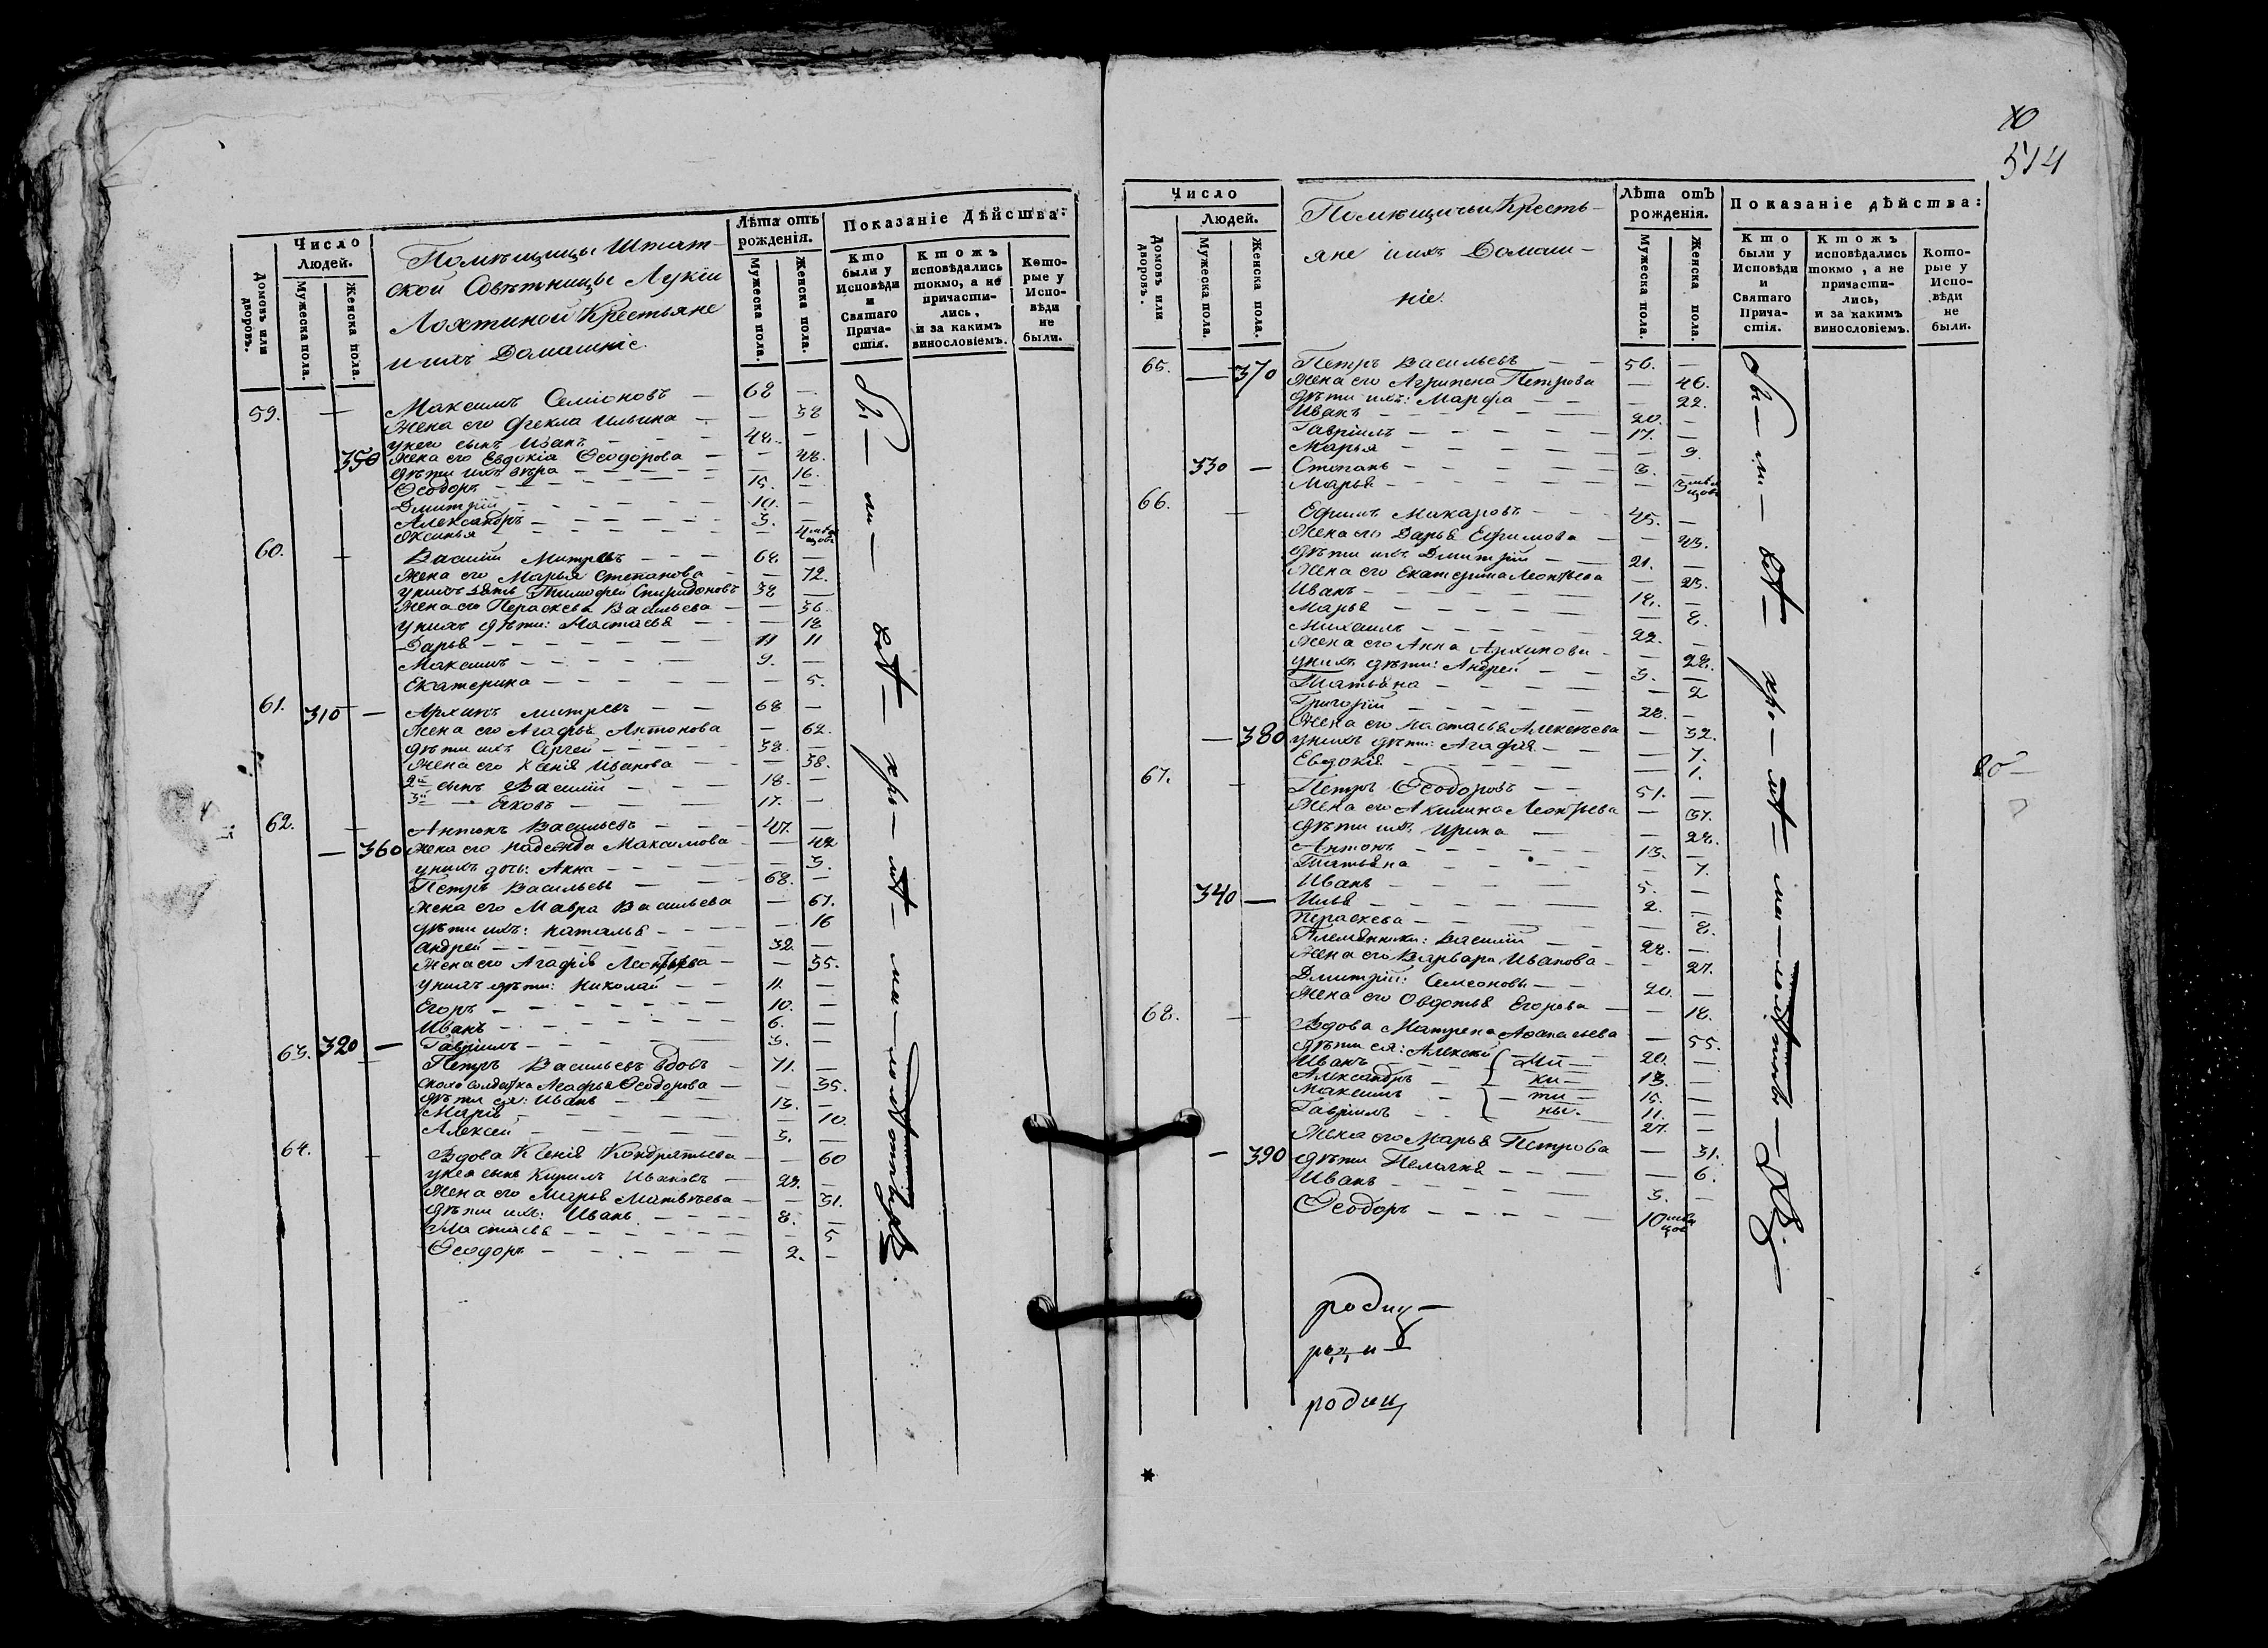 Число
Людей.
Домовъ или дворовъ.
Мужеска пола.
Женска пола.
Помѣщицы Штат-
ской Совѣтницы Лукіи
Лохтиной Крестьяне
и ихъ Домашніе.
Лѣта отъ рожденія.
Мужеска пола.
Женска пола.
Показаніе Дѣйства:
Кто были у Исповѣди и Святаго Прича-стія.
Ктожъ исповѣдались токмо, а не причасти-лись, и за какимъ винословіемъ.
Кото-рые у Испо-вѣди не были.
59. — Максимъ Семіоновъ — 68 —
Жена его Фекла Ильина — — 58
у него сынъ Иванъ — 48. —
350 Жена его Евдокія Ѳеодорова — — 48.
Дѣти ихъ Вѣра — — 16.
Ѳеодоръ — 15. —
Дмитрій — 10. —
Александръ — 3. —
Аксинья — — 4
60. — Василій Митревъ — 68. —
Жена его Марья Степанова — — 72.
у нихъ зять Тимофей Спиридоновъ 38 —
Жена его Пераскева Васильева — — 36.
у нихъ дѣти: Настасья — — 18
Дарья — 11 11
Максимъ — 9. —
Екатерина — — 5.
61. 310 — Архипъ Митревъ — 68 —
Жена его Агафья Антонова — 62.
Дѣти ихъ Сергей — 38. —
Жена его Ксенія Иванова — — 38.
2й сынъ Василій — 18. —
3й — Яковъ — 17. —
62. — Антонъ Васильевъ — 47. —
— 360 Жена его Надежда Максимова — 42
у нихъ дочь: Анна — — 3.
Петръ Васильевъ — 68. —
Жена его Мавра Васильева — 67.
Дѣти ихъ: Наталья — — 16
Андрей — 32. —
Жена его Агафія Леонтьева — — 35.
у нихъ дѣти: Николай — 11. —
Егоръ — 10. —
Иванъ — 6. —
320 — Гавріилъ — 3. —
63. — Петръ Васильевъ вдовъ — 71. —
Солдатка Агафья Ѳеодорова — — 35.
Дѣти ея: Иванъ — 13. —
Марія — — 10.
Алексей — 3. —
64. — Вдова Ксенія Кондратьева — — 60
у нея сынъ Кирилъ Ивановъ — 29. —
Жена его Марья Матвѣева — — 31.
Дѣти ихъ: Иванъ — 8. —
Настасья — — 5
Ѳеодоръ — 2. —
514
Число
Людей.
Домовъ или дворовъ.
Мужеска пола.
Женска пола.
Помѣщичьи Кресть-
яне и ихъ Домаш-
ніе.
Лѣта отъ рожденія.
Мужеска пола.
Женска пола.
Показаніе дѣйства:
Кто были у Исповѣди и Святаго Прича-стія.
Ктожъ исповѣдались токмо, а не причасти-лись, и за какимъ винословіемъ.
Кото-рые у Испо-вѣди не были.
65. Петръ Васильевъ — 56. —
— 370 Жена его Агрипена Петрова — 46.
Дѣти ихъ: Марфа — — 22.
Иванъ — 20. —
Гавріилъ — 17. —
Марья — — 9.
330 — Степанъ — 3. —
Марья — — 3
66. — Ефимъ Макаровъ — 45. —
Жена его Дарья Ефимова — — 43.
Дѣти ихъ Дмитрій — 21. —
Жена его Екатерина Леонтьева — 23.
Иванъ — 18. —
Марья — — 8.
Михаилъ — 22. —
Жена его Анна Архипова — — 28.
у нихъ дѣти: Андрей — 3. —
Татьяна — — 2
Григорій — 28. —
Жена его Настасья Алексѣева — 32.
— 380 у нихъ дѣти: Агафія — — 7.
Евдокія — — 1.
67. — Петръ Ѳеодоровъ — 51. —
Жена его Акилина Леонтьева — 51.
Дѣти ихъ Ирина — — 28.
Антонъ — 13. —
Татьяна — — 7.
Иванъ — 5. —
340 — Илья — 2. —
Пераскева — — 8.
Племянники: Василій — 28. —
Жена его Варвара Иванова — — 27.
Дмитрій: Семеоновъ — 20. —
Жена его Овдотья Егорова — — 18.
68. — Вдова Матрена Афанасьева — 55.
Дѣти ея: Алексей 20. —
Иванъ 18. —
Александръ 15. —
Максимъ 11. —
Гавріилъ 27. —
Жена его Марья Петрова — 31.
— 390 Дѣти Пелагія — — 6.
Иванъ — 3. —
Ѳеодоръ — 10
родиц
родиц